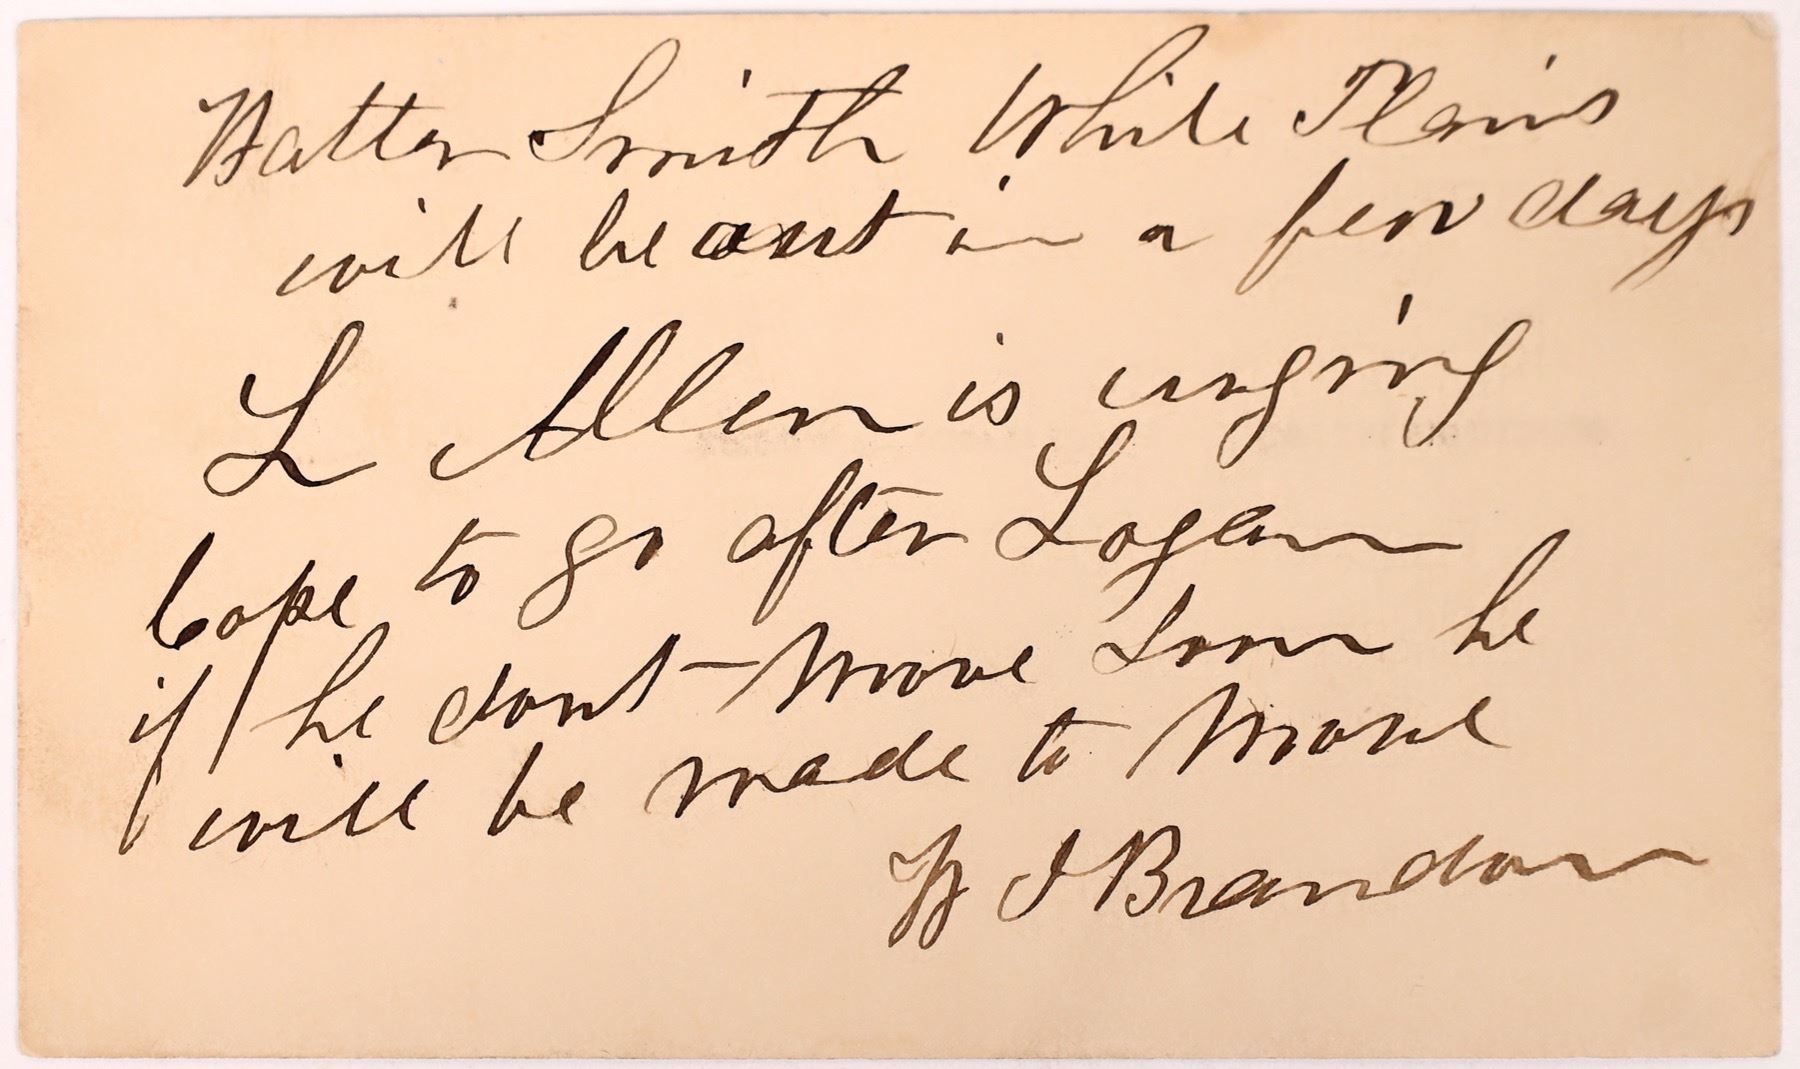 Walter Smith White Plains
will be out in a few days
L Allen is urging
Cope to go after Logan
if he dont move soon he
will be made to move
W J Brandon